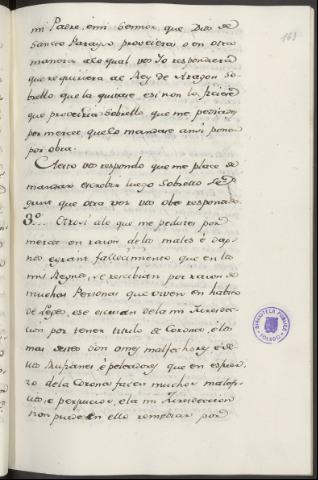 mi Padre, è mi Sennor, que Dios dé
Sancto Parayso proveiera, o en otra
manera alo qual vos Yo respondera
que requiriera al Rey de Aragon so-
brello que la quitase, e si non lo ficiere
que proveeria sobrello que me pediades
por merced que lo mandase ansi poner
por obra.
A esto vos respondo que me place de
mandar escrebir luego sobrello
segunt que otra vez vos obe respondido
3º... Otrosi alo que me pedistes por
merced en razon delos males è dap-
nos è grant fallecimiento que en los
mis Reynos, se recibian por razon de
muchas Personas que viven en habito
de Legos, e se escusan dela mi Juredic-
cion por tener titulo de Corona, è los
mas destos son omes malfechores è de-
llos Rufianes è peleadores que en esfuer-
zo dela Corona facen muchos malefi-
cios, è perjuicios, è la mi Jurediccion
non puede en ello remediar por
163
BIBLIOTECA PUBLICA
TOLEDO